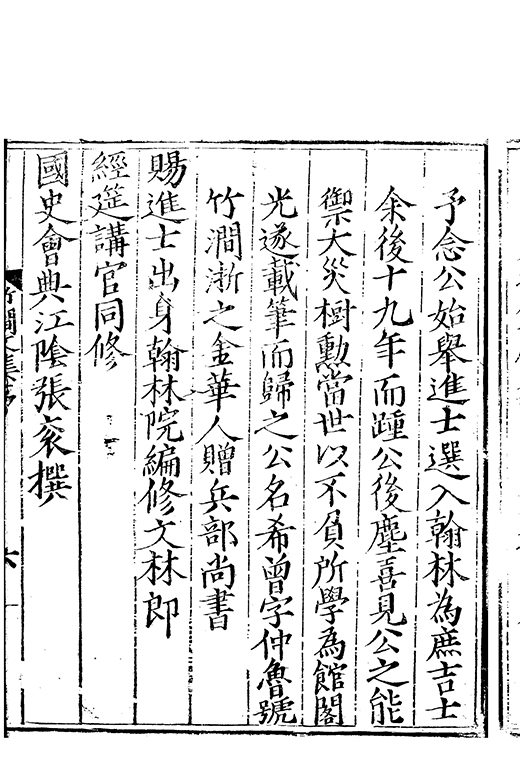 予念公始舉進士選入翰林為庶吉士
余後十九年而踵公後塵喜見公之能
禦大災樹勲當世以不負所學為館閣
光遂載筆而歸之公名希曾字仲魯號
竹澗浙之金華人贈兵部尚書
賜進士出身翰林院編修文林郎
經筵講官同修
國史會典江陰張衮撰
竹澗文集序
六